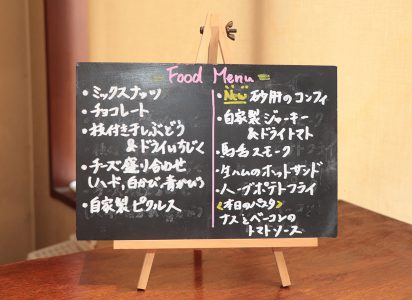 Food Menu
・ミックスナッツ
・チョコレート
・枝付き干しぶどう
&ドライいちじく
・チーズ盛り合わせ
(ハード,白かび,青かび)
・自家製ピクルス
・New 砂肝のコンフィ
・自家製ジャーキー
&ドライトマト
・馬舌スモーク
・生ハムのホットサンド
・ハーブポテトフライ
《本日のパスタ》
ナスとベーコンの
トマトソース